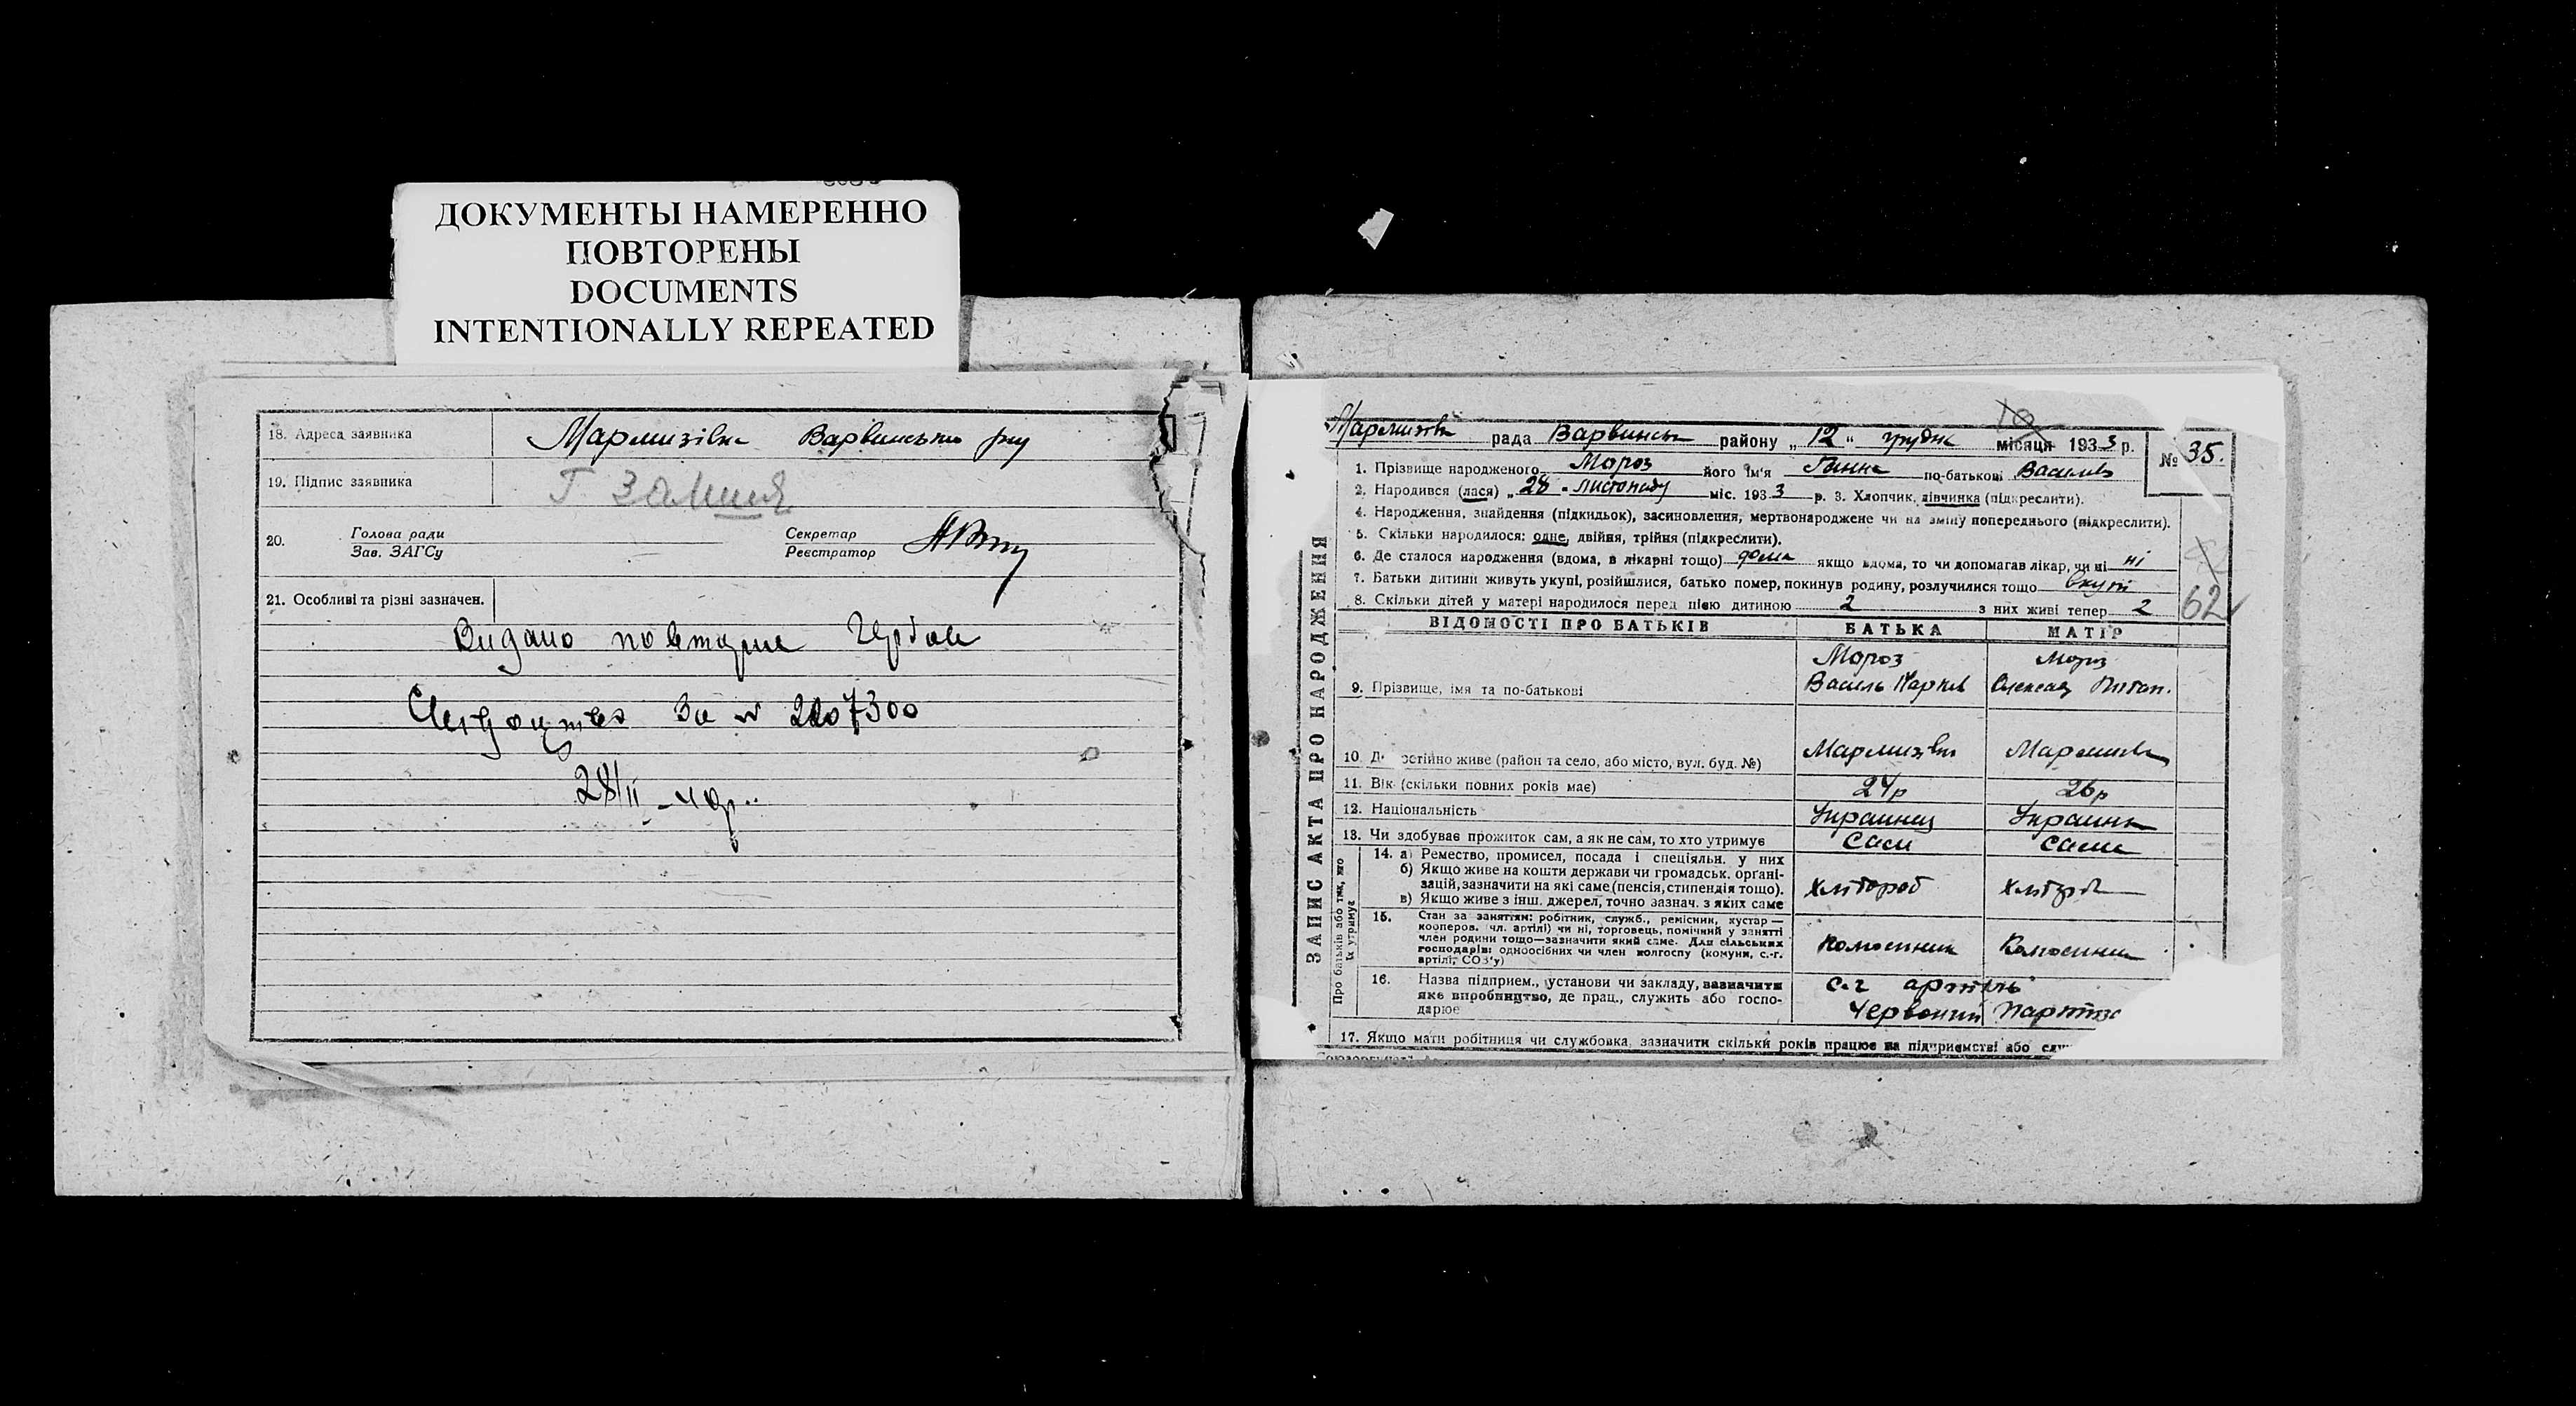 ДОКУМЕНТЫ НАМЕРЕННО
ПОВТОРЕНЫ
DOCUMENTS
INTENTIONALLY REPEATED
18. Адреса заявника Мармизівка Варвинськ р-ну
19. Підпис заявника Г
20. Голова ради
Зав. ЗАГСу
Секретар
Реєстратор
21. Особливі та різні зазначен.
Видано повторне
за № 2207300
28/II - 40р.
ЗАПИС АКТА ПРО НАРОДЖЕННЯ
Мармизівк рада Варвинськ району „12" грудня місяця 1933 р. № 35.
1. Прізвище народженого Мороз його ім'я Ганна по-батькові Василів
2. Народився (лася) „28" листопаду міс. 1933 р. 3. Хлопчик, дівчинка (підкреслити).
4. Народження, знайдення (підкидьок), засиновлення, мертвонароджене чи на зміну попереднього (підкреслити).
5. Скільки народилося: одне, двійня, трійня (підкреслити).
6. Де сталося народження (вдома, в лікарні тощо) дома якщо вдома, то чи допомагав лікар, чи ні ні
7. Батьки дитини живуть укупі, розійшлися, батько помер, покинув родину, розлучилися тощо вкупі
8. Скільки дітей у матері народилося перед цією дитиною 2 з них живі тепер 2
62
ВІДОМОСТІ ПРО БАТЬКІВ БАТЬКА МАТІР
Мороз Мороз
9. Прізвище, імя та по-батькові Василь Марків Олександ Потап.
10. Де постійно живе (район та село, або місто, вул. буд. №) Мармизівка Мармизівка
11. Вік (скільки повних років має) 24р 26р
12. Національність Украинец Украинк
13. Чи здобуває прожиток сам, а як не сам, то хто утримує Сам сама
Про батьків або тих, хто їх утримує
14. а) Ремество, промисел, посада і спеціяльн. у них
б) Якщо живе на кошти держави чи громадськ. орґані-
зацій, зазначити на які саме (пенсія, стипендія тощо).
в) Якщо живе з інш. джерел, точно зазнач. з яких саме
хлібороб хлібороб
15. Стан за заняттям: робітник, служб., ремісник, кустар —
кооперов. (чл. артілі) чи ні, торговець, помічний у занятті
член родини тощо—зазначити який саме. Для сільських
господарів: одноосібних чи член колгоспу (комуни, с.-г.
артілі, СОЗ'у)
колгоспник колгоспник
16. Назва підприєм., установи чи закладу, зазначити
яке виробництво, де прац., служить або госпо-
дарює
с.г артіль
Червоний Партиз
17. Якщо мати робітниця чи службовка, зазначити скільки років працює на підприємстві або